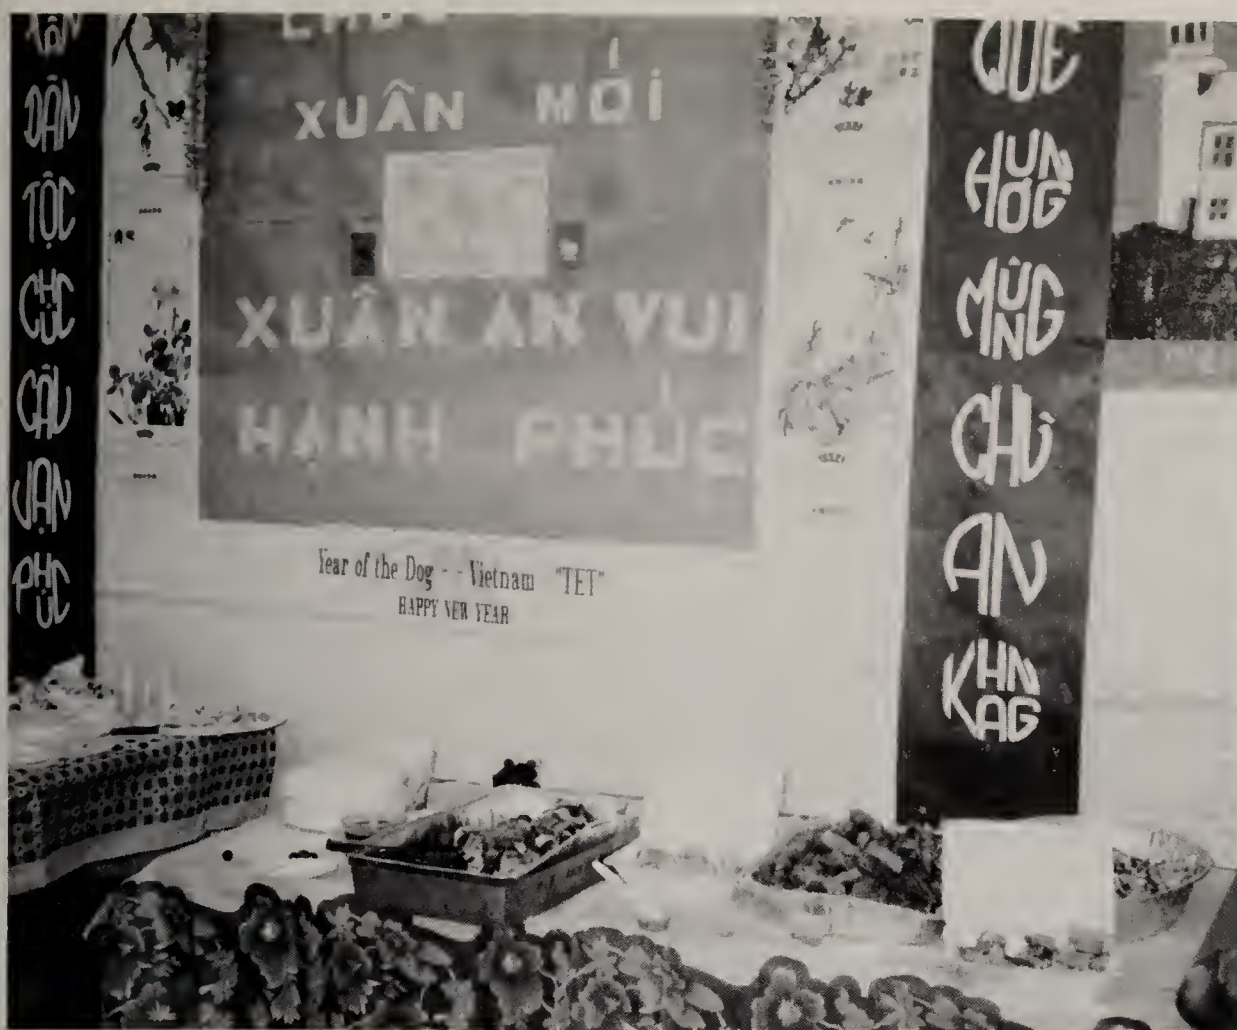 DÂN
TỘC
CHÚC
CẦU
VẠN
PHÚC
XUÂN MỚI
XUÂN AN VUI
HẠNH PHÚC
Year of the Dog - - Vietnam "TET"
HAPPY NEW YEAR
QUÊ
HƯƠNG
MỪNG
CHỮ
AN
KHANG